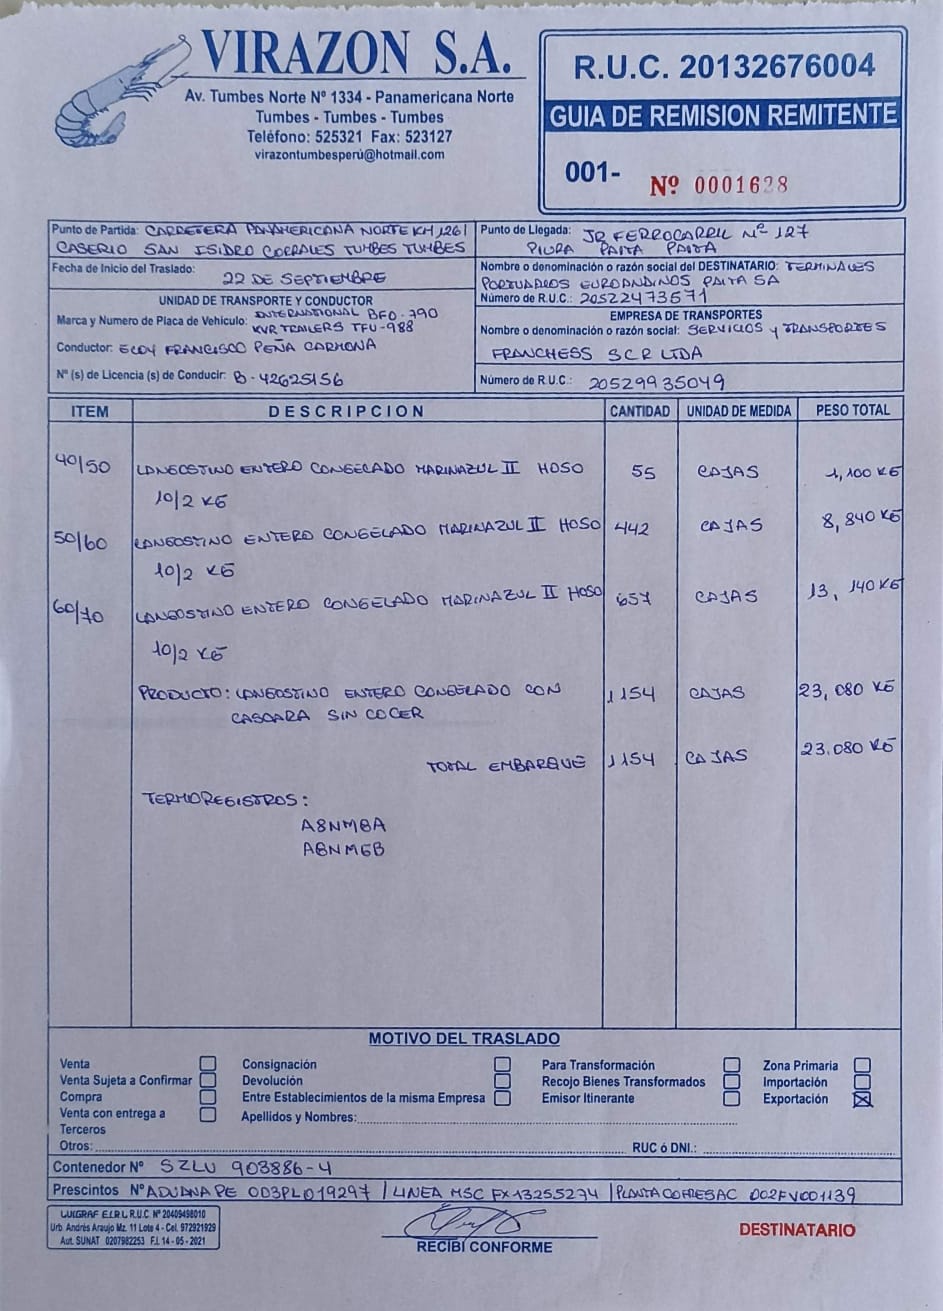 VIRAZON S.A.
Av. Tumbes Norte Nº 1334 - Panamericana Norte
Tumbes - Tumbes - Tumbes
Teléfono: 525321 Fax: 523127
virazontumbesperú@hotmail.com
R.U.C. 20132676004
GUIA DE REMISION REMITENTE
001- Nº 0001628
Punto de Partida: CARRETERA PANAMERICANA NORTE KM 1261
CASERIO SAN ISIDRO CORRALES TUMBES TUMBES
Punto de Llegada: JR FERROCARRIL Nº 127
PIURA PAITA PAITA
Fecha de Inicio del Traslado: 22 DE SEPTIEMBRE
Nombre o denominación o razón social del DESTINATARIO: TERMINALES
PORTUARIOS EUROANDINOS PAITA SA
Número de R.U.C.: 20522473571
UNIDAD DE TRANSPORTE Y CONDUCTOR
Marca y Numero de Placa de Vehículo: INTERNATIONAL BFO-790
KVR TRAILERS TFU-988
Conductor: ELOY FRANCISCO PEÑA CARMONA
Nº (s) de Licencia (s) de Conducir: B-42625156
EMPRESA DE TRANSPORTES
Nombre o denominación o razón social: SERVICIOS Y TRANSPORTES
FRANCHESS SCR LTDA
Número de R.U.C.: 20529935049
ITEM DESCRIPCION CANTIDAD UNIDAD DE MEDIDA PESO TOTAL
40/50 LANGOSTINO ENTERO CONGELADO MARINAZUL II HOSO 55 CAJAS 1,100 KG
10/2 KG
50/60 LANGOSTINO ENTERO CONGELADO MARINAZUL II HOSO 442 CAJAS 8,840 KG
10/2 KG
60/70 LANGOSTINO ENTERO CONGELADO MARINAZUL II HOSO 657 CAJAS 13,140 KG
10/2 KG
PRODUCTO: LANGOSTINO ENTERO CONGELADO CON 1154 CAJAS 23,080 KG
CASCARA SIN COCER
TOTAL EMBARQUE 1154 CAJAS 23.080 KG
TERMOREGISTROS:
A8NM8A
A8NM6B
MOTIVO DEL TRASLADO
Venta Consignación Para Transformación Zona Primaria
Venta Sujeta a Confirmar Devolución Recojo Bienes Transformados Importación
Compra Entre Establecimientos de la misma Empresa Emisor Itinerante Exportación
Venta con entrega a Apellidos y Nombres:
Terceros
Otros: RUC ó DNI.:
Contenedor Nº SZLU 903886-4
Prescintos Nº ADUANA PE 003PL019297 | LINEA MSC FX13255274 | PLANTA COFRESAC 002FV001139
LUIGRAF E.I.R.L R.U.C. Nº 20409498010
Urb. Andrés Araujo Mz. 11 Lote 4 - Cel. 972921929
Aut. SUNAT 0207982253 F.I. 14 - 05 - 2021
RECIBÍ CONFORME
DESTINATARIO